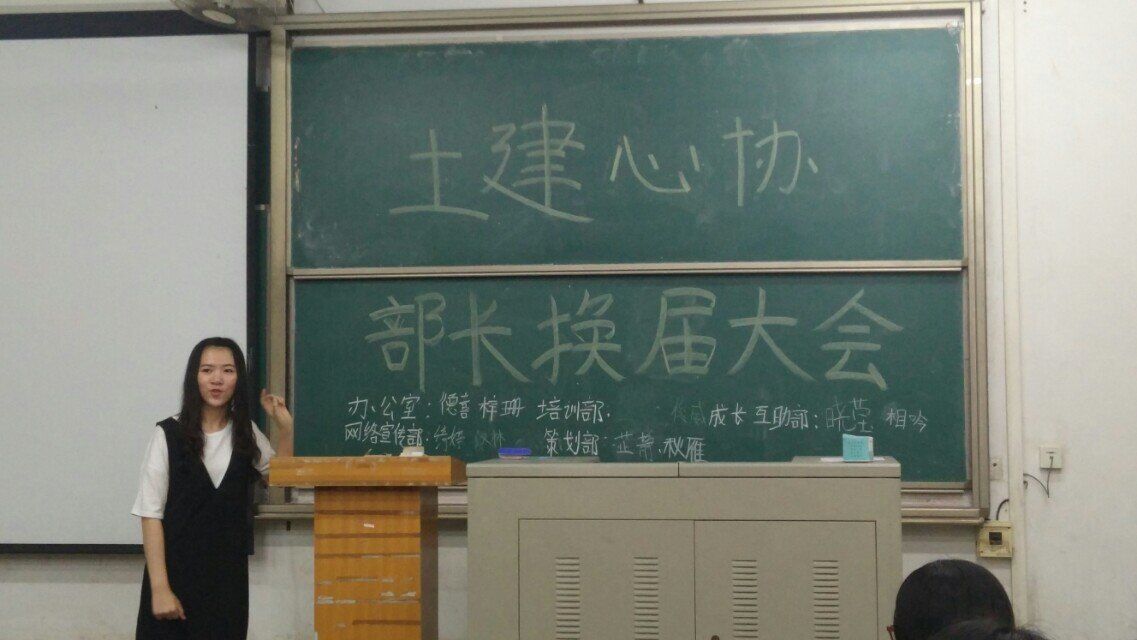 土建心协
部长换届大会
办公室：德喜 梓珊 培训部： 成长互助部：晓莹 相吟
网络宣传部： 策划部：芷菁 秋雁